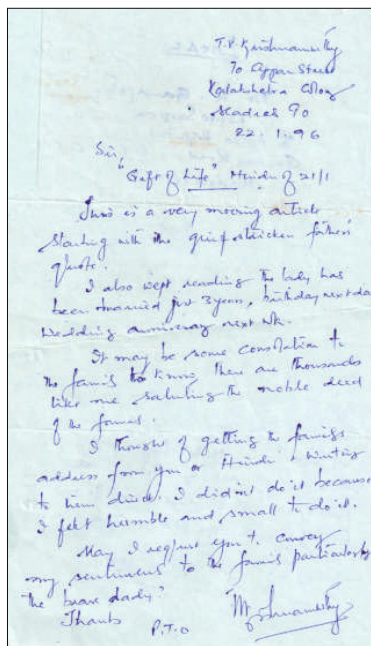 T.V. Krishnamurthy
70 Appar Street
Kalakshetra Colony
Madras 90
22.1.96
Sir,
"Gift of Life" Hindu of 21/1
This is a very moving article
starting with the grief stricken fathers'
quote.
I also wept reading the lady has
been married just 3 years, birthday next day
wedding anniversary next wk.
It may be some consolation to
the family to know there are thousands
like me saluting the noble deed
of the family.
I thought of getting the family's
address from you or Hindu & writing
to them direct. I didnt do it because
I felt humble and small to do it.
May I request you to convey
my sentiments to the family particularly
the brave dady?
Thanks
P.T.O